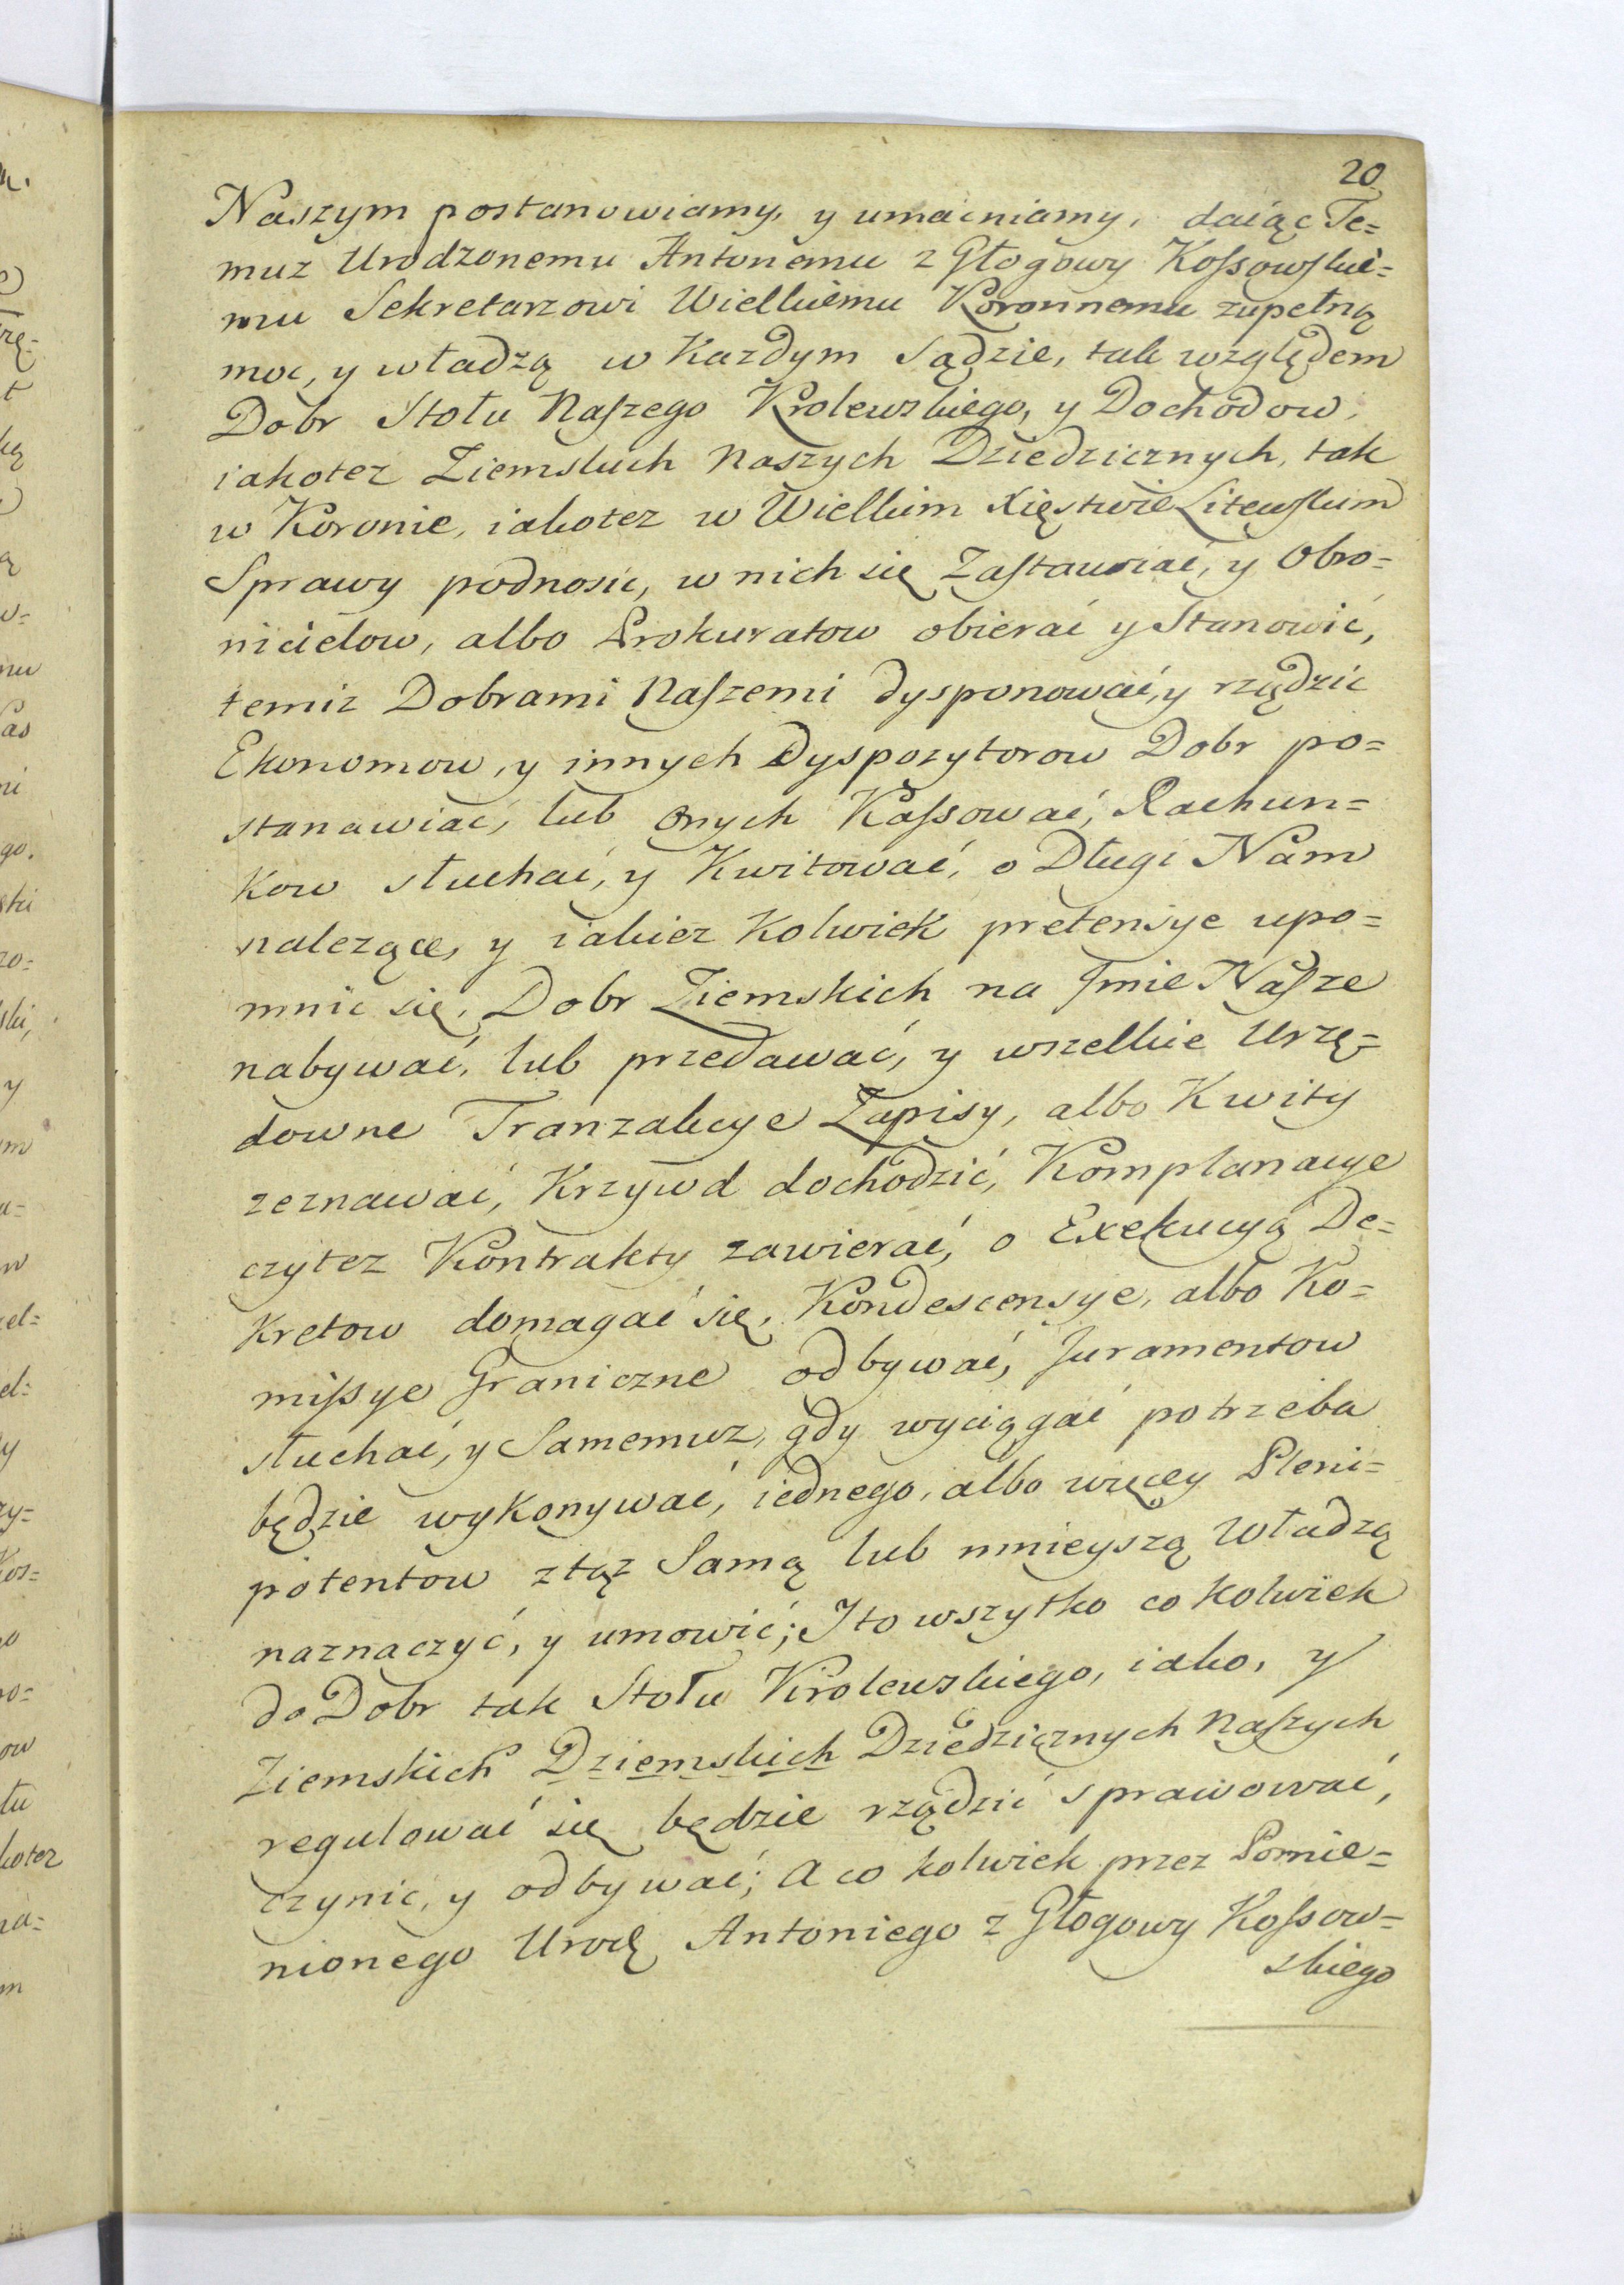 20
Naszym postanowiamy, y umacniamy, daiąc Te=
muz Urodzonemu Antoniemu z Głogowy Kossowskie=
mu Sekretarzowi Wielkiemu Koronnemu zupełną
moc, y władzą w Kazdym Sądzie, tak względem
Dobr Stołu Naszego Krolewskiego, y Dochodow,
iakotez Ziemskich Naszych Dziedzicznych, tak
w Koronie, iakotez w Wielkim Xięstwie Litewskim
Sprawy podnosic, w nich się Zastawiać, y Obro=
nicielow, albo Prokuratow obierać y Stanowić,
temiz Dobrami Naszemi dysponować, y rządzic
Ekonomow, y innych Dyspozytorow Dobr po=
stanawiać, lub onych Kassować, Rachun=
kow słuchać, y Kwitować, o Długi Nam
nalezące, y iakiez Kolwiek pretensye upo=
mnic się, Dobr Ziemskich na Jmie Nasze
nabywać, lub przedawać, y wszelkie Urzę=
downe Tranzakcye Zapisy, albo Kwity
zeznawać, Krzywd dochodzić, Komplanacye
czytez Kontrakty zawierać, o Exekucyą De=
kretow domagać się, Kondescensye, albo Ko=
missye Graniczne odbywać, Juramentow
słuchać, y Samemuz, gdy wyciągać potrzeba
będzie wykonywać, iednego, albo więcey Pleni=
potentow ztąz Samą lub mnieyszą Władzą
naznaczyć, y umowić; J to wszytko co kolwiek
do Dobr tak Stołu Krolewskiego, iako, y
Ziemskich Dziemskich Dziedzicznych Naszych
regulować się będzie rządzić sprawować,
czynic, y odbywać; A co kolwiek przez Pomie=
nionego Urodz Antoniego z Głogowy Kossow=
skiego